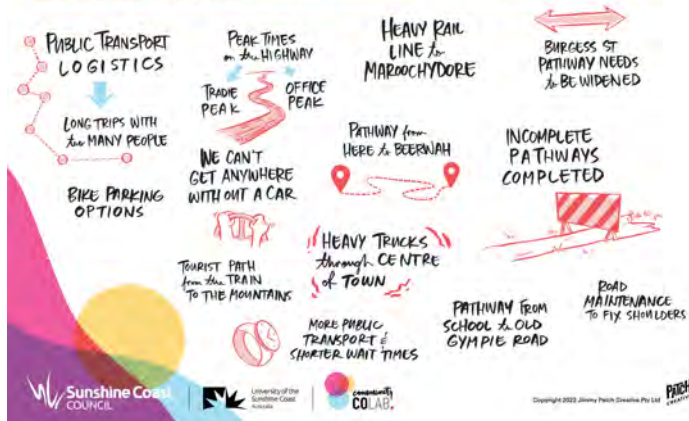 PUBLIC TRANSPORT
LOGISTICS
LONG TRIPS WITH
too MANY PEOPLE
BIKE PARKING
OPTIONS
PEAK TIMES
on the HIGHWAY
TRADIE
PEAK
OFFICE
PEAK
WE CAN'T
GET ANYWHERE
WITH OUT A CAR
TOURIST PATH
from the TRAIN
TO THE MOUNTAINS
MORE PUBLIC
TRANSPORT &
SHORTER WAIT TIMES
HEAVY RAIL
LINE to
MAROOCHYDORE
PATHWAY from
HERE to BEERWAH
HEAVY TRUCKS
through CENTRE
of TOWN
BURGESS ST
PATHWAY NEEDS
to BE WIDENED
INCOMPLETE
PATHWAYS
COMPLETED
PATHWAY FROM
SCHOOL to OLD
GYMPIE ROAD
ROAD
MAINTENANCE
TO FIX SHOULDERS
Sunshine Coast
COUNCIL
University of the
Sunshine Coast
Australia
community
COLAB.
Copyright 2022 Jimmy Patch Creative Pty Ltd
PATCH
CREATIVE